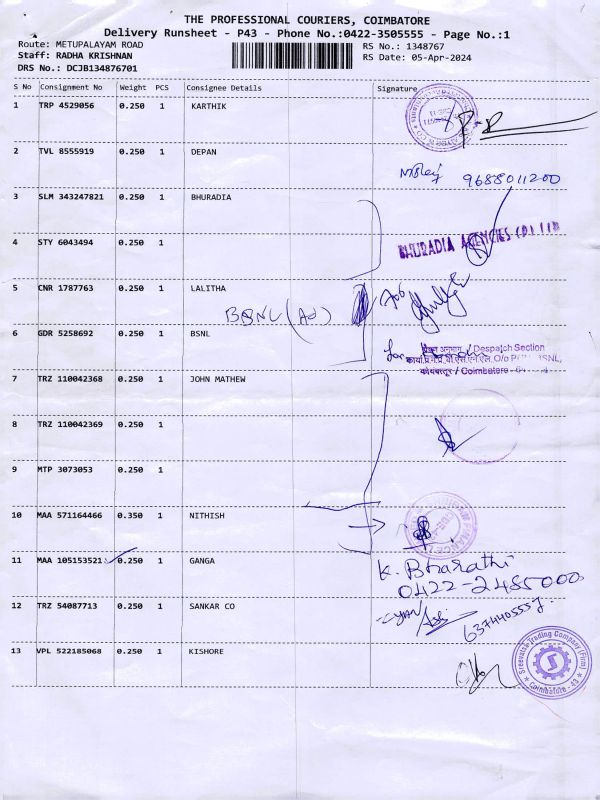 THE PROFESSIONAL COURIERS, COIMBATORE
Delivery Runsheet - P43 - Phone No.:0422-3505555 - Page No.:1
Route: METUPALAYAM ROAD
RS No.: 1348767
Staff: RADHA KRISHNAN
RS Date: 05-Apr-2024
DRS No.: DCJB134876701
S No Consignment No Weight PCS Consignee Details Signature
1 TRP 4529056 0.250 1 KARTHIK
2 TVL 8555919 0.250 1 DEPAN
9688011200
3 SLM 343247821 0.250 1 BHURADIA
4 STY 6043494 0.250 1
BHURADIA AGENCIES (P) LTD
5 CNR 1787763 0.250 1 LALITHA
BSNL (Ad)
6 GDR 5258692 0.250 1 BSNL
अनुभाग / Despatch Section
O/o BSNL,
कोयंबत्तूर / Coimbatore -
7 TRZ 110042368 0.250 1 JOHN MATHEW
8 TRZ 110042369 0.250 1
9 MTP 3073053 0.250 1
10 MAA 571164466 0.350 1 NITHISH
11 MAA 105153521 0.250 1 GANGA
K. Bharathi
0422-2485000
12 TRZ 54087713 0.250 1 SANKAR CO
6374405557
13 VPL 522185068 0.250 1 KISHORE
Sreevatsa Trading Company (Firm)
Coimbatore - 43